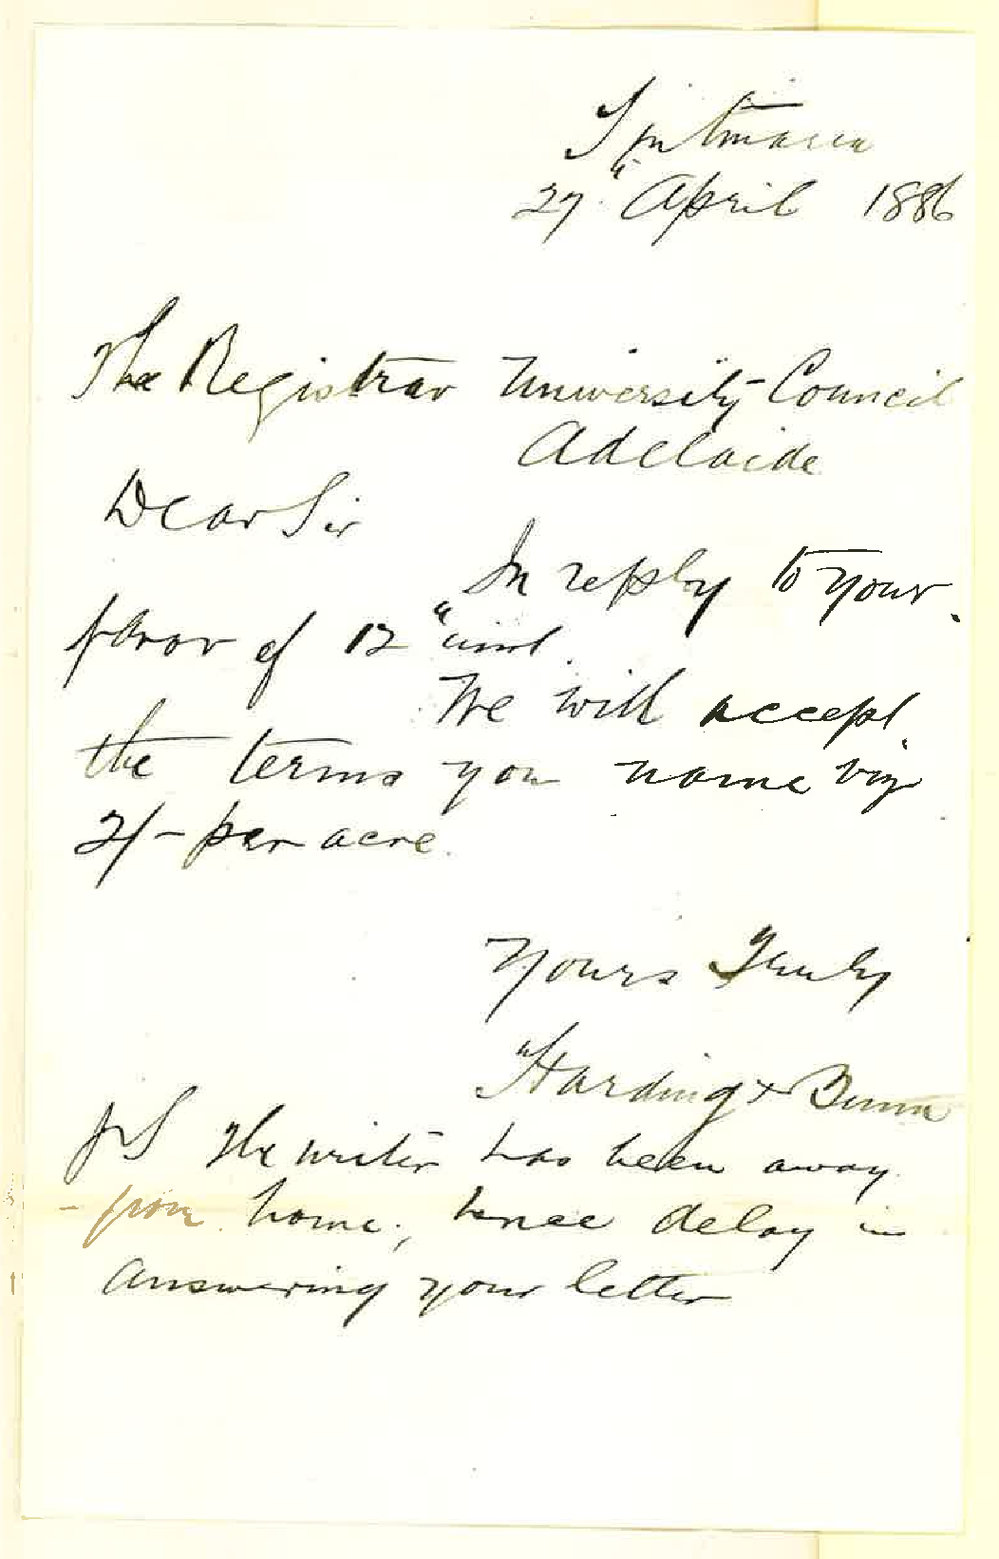 27" April 1886
The Registrar University Council
Adelaide
Dear Sir
In reply to your
favor of 12" inst.
We will accept
the terms you name viz
2/- per acre.
Yours Truly
Harding & Bunn
PS The writer has been away
from home; hence delay in
answering your letter